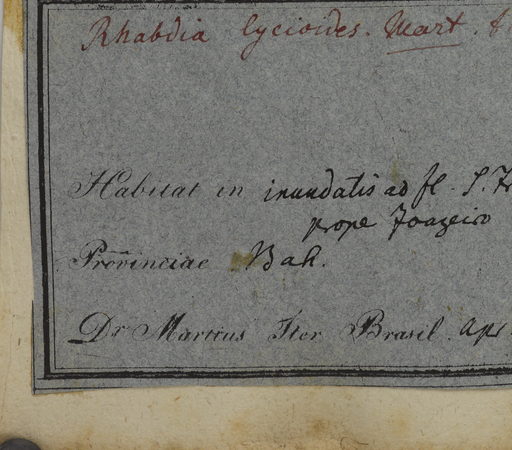 Rhabdia lycioides. Mart.
Habitat in inundatis ad fl. S. Fr
prope Joazeiro
Provinciae Bah.
Dr Martius Iter Brasil. Apr.